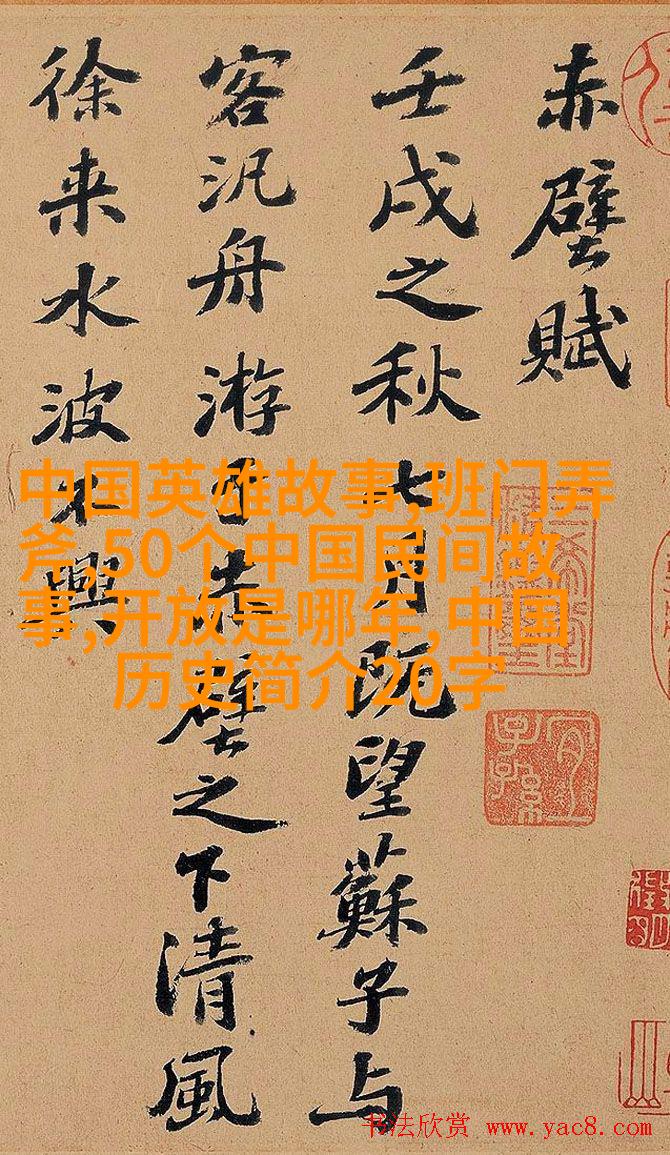 赤壁賦
壬戌之秋七月既望蘇子与
客汎舟游于赤壁之下清風
徐来水波不興
中国英雄故事,班门弄
斧,50个中国民间故
事,开放是哪年,中国
历史简介20字
书法欣赏 www.yac8.com